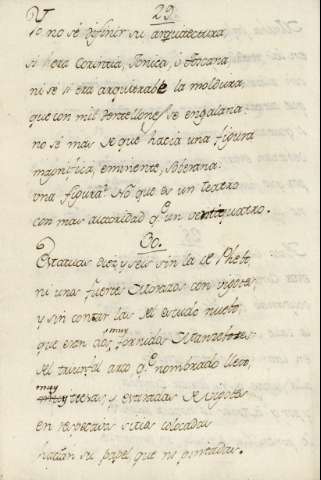 29.
Yo no sé definir su arquitectura,
si hera Corintia, Jonica, ò toscana,
ni se si era arquitrabe la moldura,
que con mil dentellones se engalana:
no sé mas sé que hacia una figura
magnifica, eminente, soberana:
una figura? No que es un
con mas autoridad q.e un veintiquatro.
30.
Estatuas diez y seis sin la de Phebo,
ni unas fuertes con vigotes
y sin contar las del escudo nuevo,
que eran dos, muy fornidos
del triunfal arco q.e nombrado llevo,
muy tiesas; y estiradas de vigotes
en respectivos sitios colocadas
hacían su papel que ni pintadas.